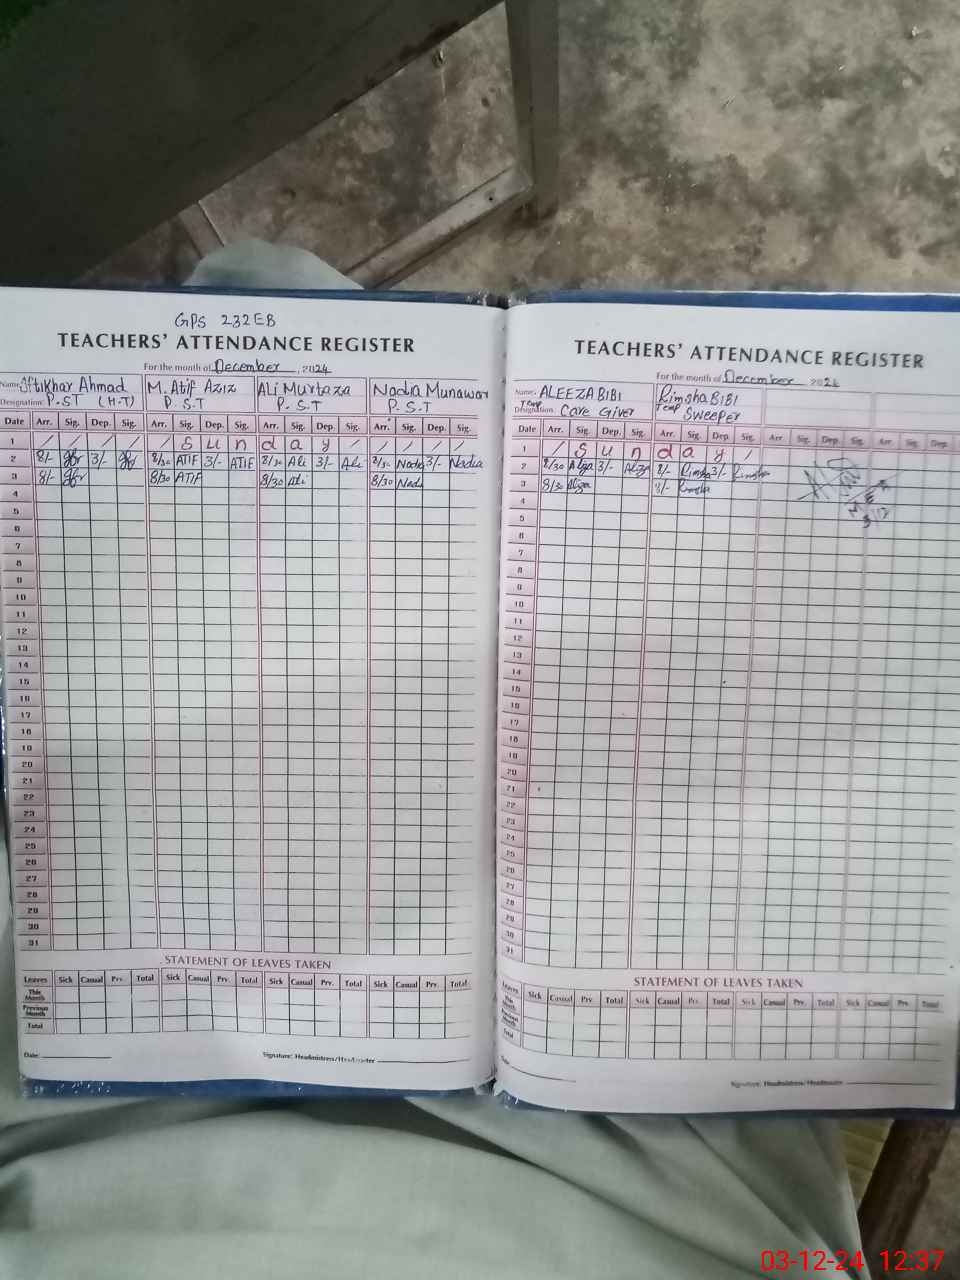 GPS 232EB
TEACHERS' ATTENDANCE REGISTER
For the month of December, 2024
Name Iftikhar Ahmad M. Atif Aziz Ali Murtaza Nadia Munawar
Designation P.ST (H.T) P.S.T P.S.T P.S.T
Date Arr. Sig. Dep. Sig. Arr. Sig. Dep. Sig. Arr. Sig. Dep. Sig. Arr. Sig. Dep. Sig.
1 / / / / / S u n d a y / / / / /
2 8/- 3/- 8/30 ATIF 3/- ATIF 8/30 Ali 3/- Ali 8/30 Nadia 3/- Nadia
3 8/- 8/30 ATIF 8/30 Ali 8/30 Nadi
4
5
6
7
8
9
10
11
12
13
14
15
16
17
18
19
20
21
22
23
24
25
26
27
28
29
30
31
STATEMENT OF LEAVES TAKEN
Leaves Sick Casual Prv. Total Sick Casual Prv. Total Sick Casual Prv. Total Sick Casual Prv. Total
This Month
Previous Month
Total
Date: Signature: Headmistress/Headmaster
TEACHERS' ATTENDANCE REGISTER
For the month of December 2024
Name: ALEEZA BIBI Rimsha BIBI
Designation: Temp Care Giver Temp Sweeper
Date Arr. Sig. Dep. Sig. Arr. Sig. Dep. Sig. Arr. Sig. Dep. Sig. Arr. Sig. Dep.
1 / S u n d a y /
2 8/30 Aliza 3/- Aliza 8/- Rimsha 3/- Rimsha
3 8/30 Aliza 8/- Rimsha
4
5
6
7
8
9
10
11
12
13
14
15
16
17
18
19
20
21
22
23
24
25
26
27
28
29
30
31
STATEMENT OF LEAVES TAKEN
Leaves Sick Casual Prv. Total Sick Casual Prv. Total Sick Casual Prv. Total Sick Casual Prv. Total
This Month
Previous Month
Total
Date: Signature: Headmistress/Headmaster
03-12-24 12:37